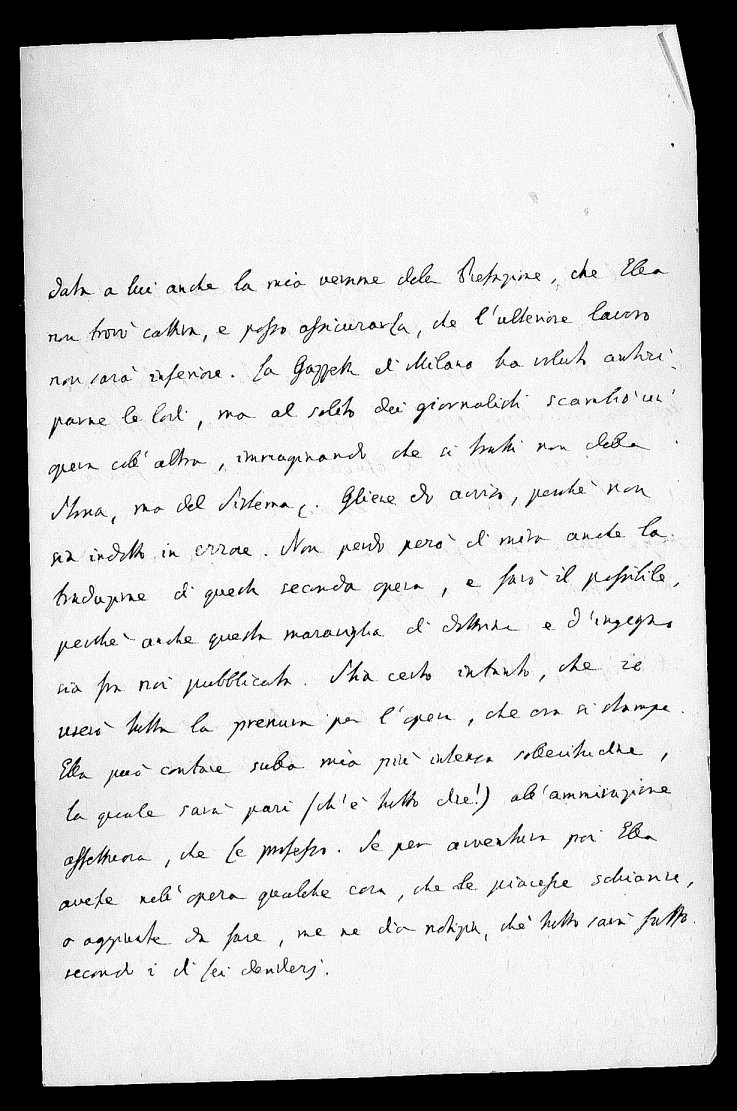 data a lui anche la mia versione della Prefazione, che Ella
non trovò cattiva, e posso assicurarla, che l'ulteriore lavoro
non sarà inferiore. La Gazzetta di Milano ha voluto antici-
parne le lodi, ma al solito dei giornalisti scambiò un'
opera coll'altra, immaginando che si tratti non della
Storia, ma del Sistema. Gliene do avviso, perchè non
sia indotto in errore. Non perdo però di mira anche la
traduzione di questa seconda opera, e farò il possibile,
perchè anche questa maraviglia di dottrina e d'ingegno
sia fra noi pubblicata. Stia certo intanto, che io
userò tutta la premura per l'opera, che ora si stampa.
Ella può contare sulla mia più intensa sollecitudine,
la quale sarà pari (ch'è tutto dire!) all'ammirazione
affettuosa, che Le professo. Se per avventura poi Ella
avesse nell'opera qualche cosa, che Le piacesse schiarire,
o aggiunte da fare, me ne dia notizia, chè tutto sarà fatto
secondo i di Lei desiderj.